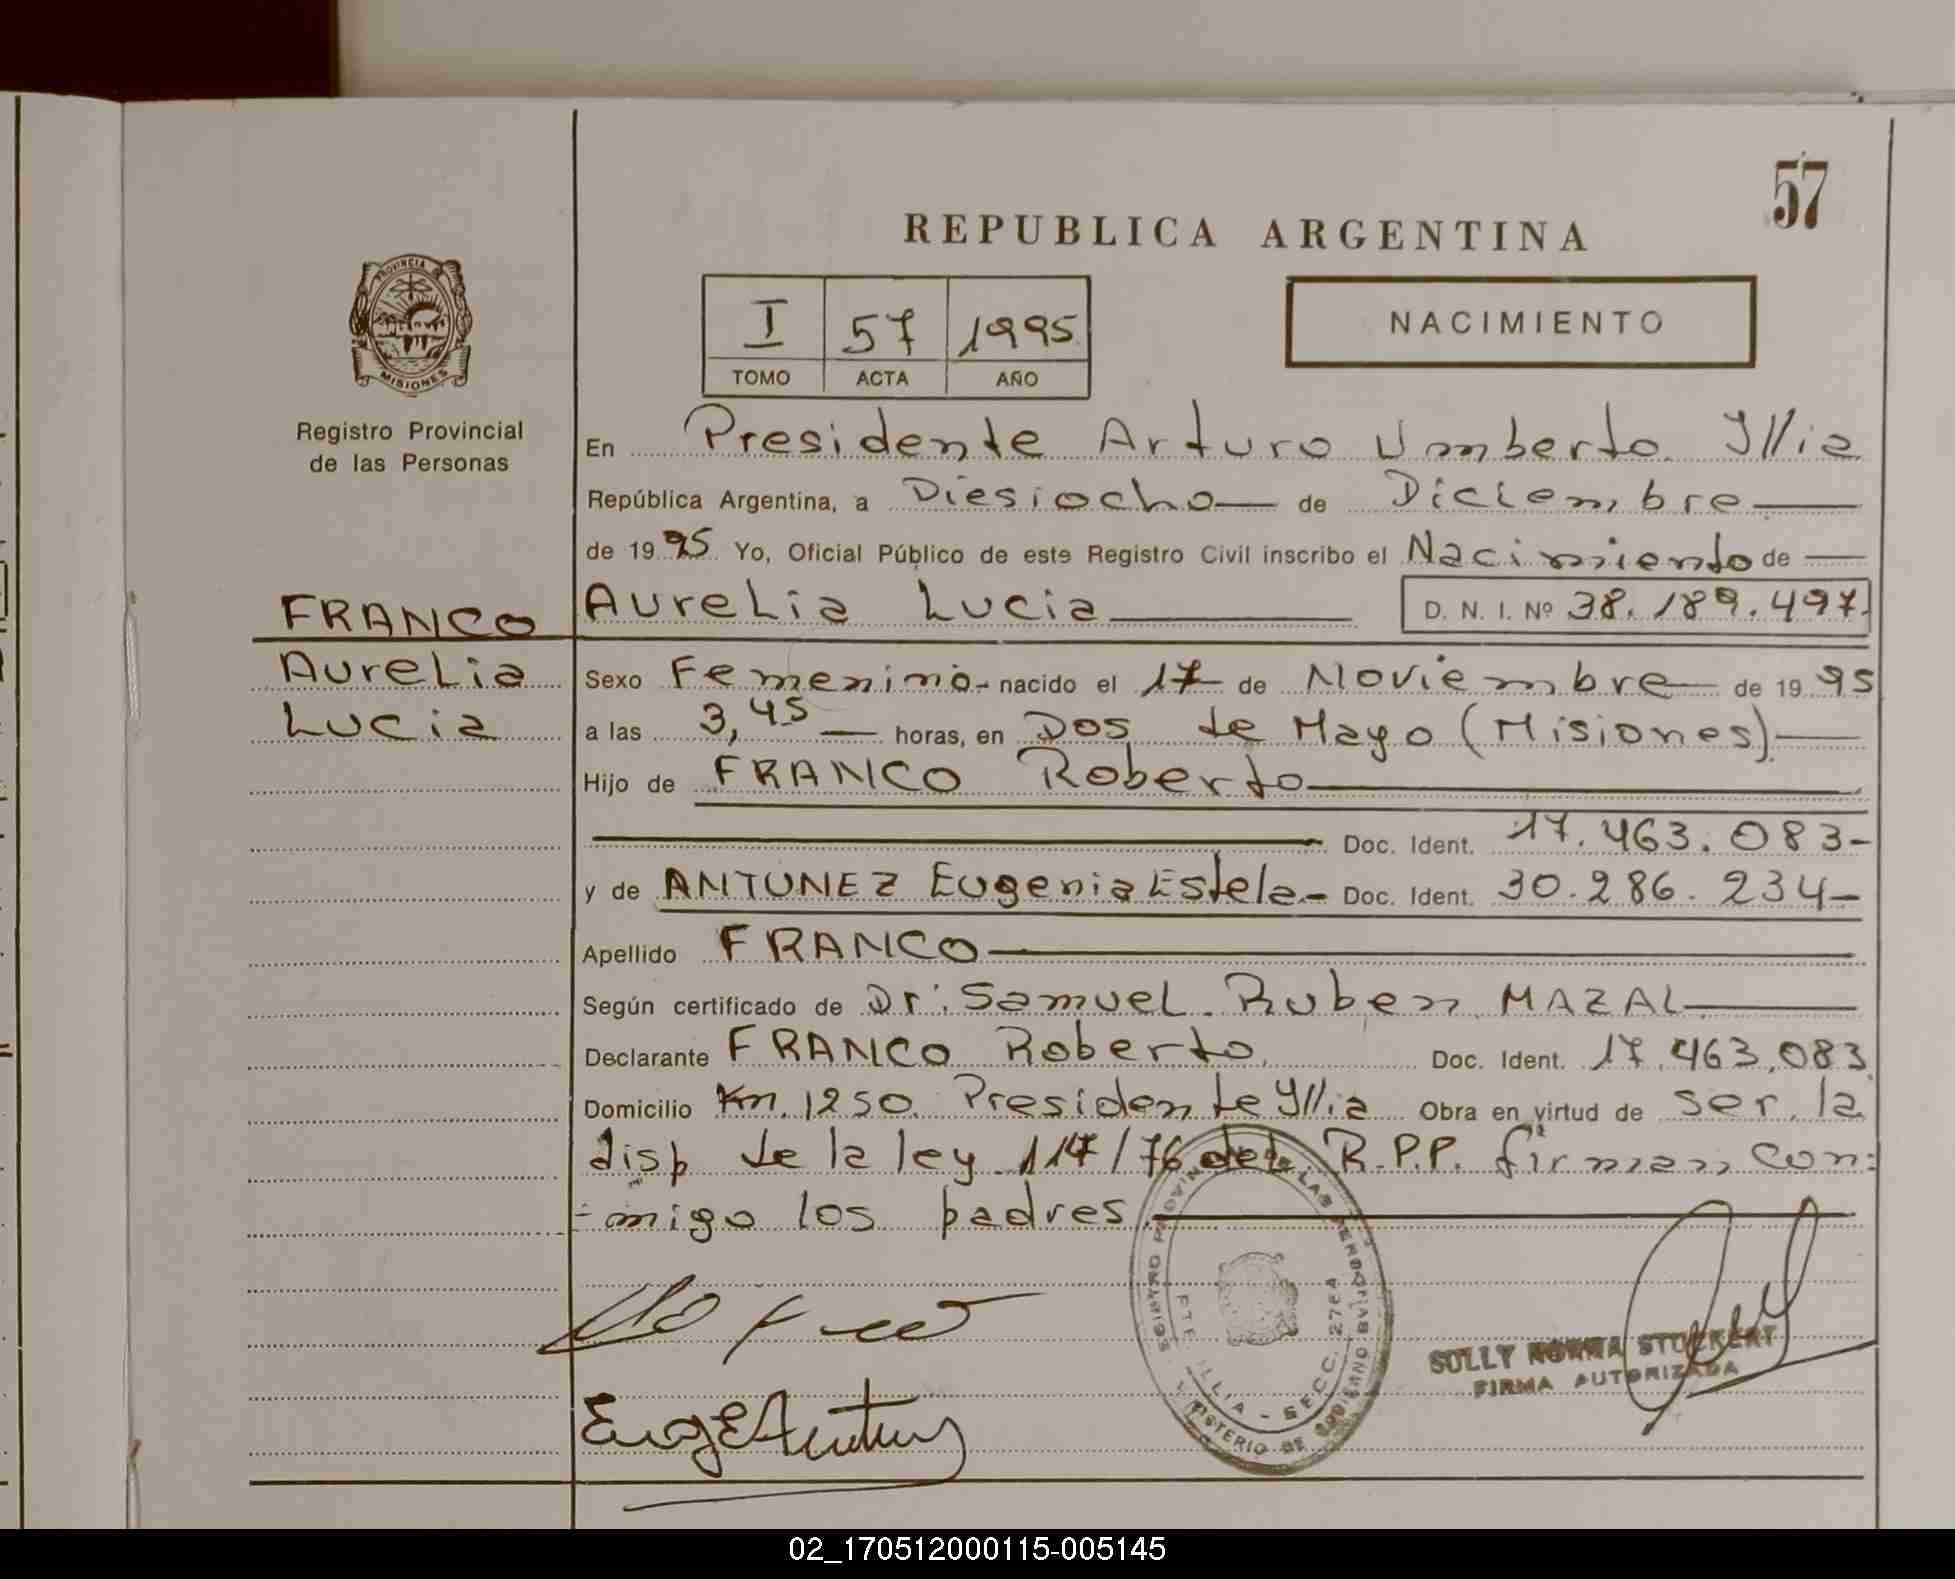 57
REPUBLICA ARGENTINA
PROVINCIA DE
MISIONES
Registro Provincial
de las Personas
I 57 1995
TOMO ACTA AÑO
NACIMIENTO
En Presidente Arturo Umberto Yllia
República Argentina, a Diesiocho de Diciembre
de 1995 Yo, Oficial Público de este Registro Civil inscribo el Nacimiento de
FRANCO
Aurelia
Lucia
Aurelia Lucia D. N. I. Nº 38.189.497.
Sexo Femenino - nacido el 17 de Noviembre de 1995
a las 3,45 horas, en Dos de Mayo (Misiones)
Hijo de FRANCO Roberto
Doc. Ident. 17.463.083-
y de ANTUNEZ Eugenia Estela - Doc. Ident. 30.286.234-
Apellido FRANCO
Según certificado de Dr. Samuel Ruben MAZAL
Declarante FRANCO Roberto Doc. Ident. 17.463.083
Domicilio Km. 1250 Presidente Yllia Obra en virtud de ser la
disp de la ley 117/76 del R.P.P. firman con=
=migo los padres.
REGISTRO PROVINCIAL DE LAS PERSONAS
PTE. ILLIA - SECC. 276A
MINISTERIO DE GOBIERNO
SULLY NORMA STUCKERT
FIRMA AUTORIZADA
02_170512000115-005145